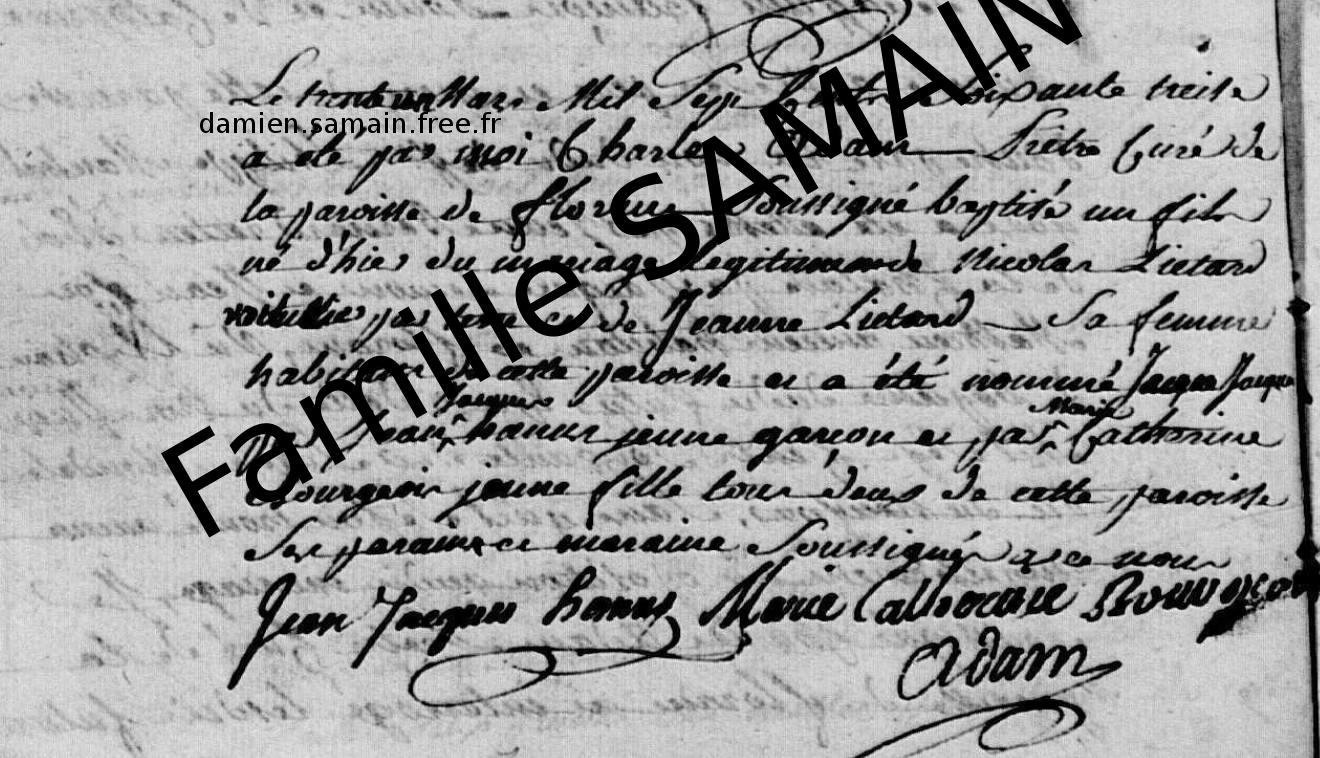 Le trente un Mars Mil Sept Cent Soixante treise
damien.samain.free.fr
a été par moi Charles Adam Prêtre Curé de
la paroisse de florine Soussigné baptisé un fils
né d'hier du mariage legitime de Nicolas Lietard
voiturier par terre et de Jeanne Lietard Sa femme
habitans de cette paroisse et a été nommé Jacque Jacque
Jacques Marie
par Jean hanns jeune garçon et par Catherine
Bourgeois jeune fille tous deux de cette paroisse
Ses parain et maraine Soussignés avec nous
Jean Jacques hanns Marie Catherine Bourgeois
Adam
Famille SAMAIN